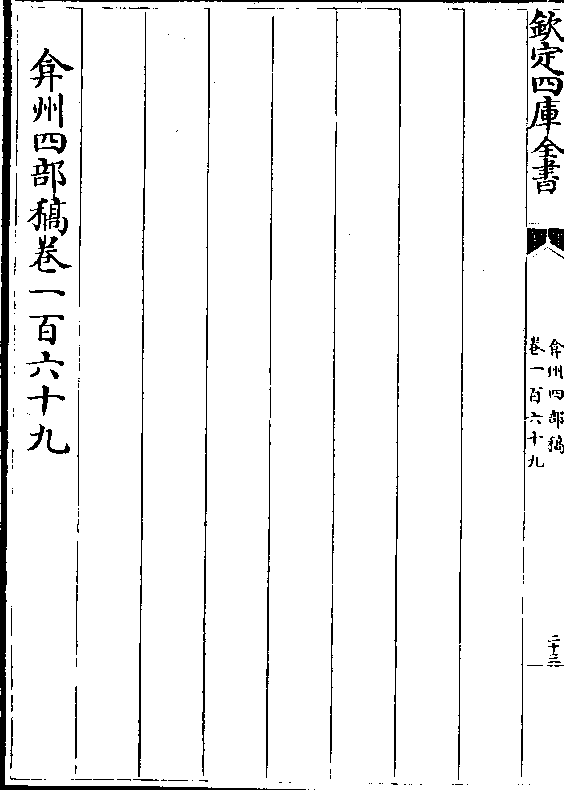 欽定四庫全書
弇州四部稿
卷一百六十九
二十三
弇州四部稿卷一百六十九